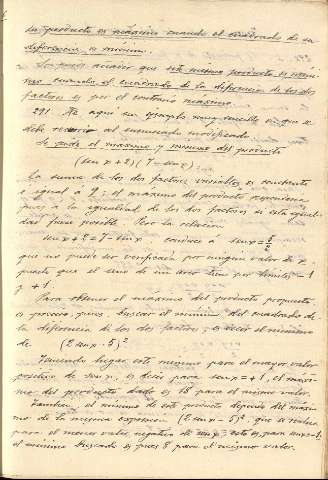 su producto es máximo cuando el cuadrado de su
diferencia es mínimo.
que este mismo producto es mini-
mo cuando el cuadrado de la diferencia de los dos
factores es por el contrario máximo.
291. He aqui un ejemplo muy sencillo en que se
debe recurrir al enunciado modificado.
Se pide el máximo y mínimo del producto
(sen x + 2)(7 - sen x)
La suma de los dos factores variables es constante
é igual á 9; el máximo del producto
pues á la igualdad de los dos factores si esta igual-
dad fuese posible. Pero la relación
sen x + 2 = 7 - sen x conduce á sen x = 5/2
que no puede ser verificada por ningún valor de x
puesto que el seno de un arco tiene por limites - 1
y + 1
Para obtener el máximo del producto propuesto
es preciso pues, buscar el mínimo del cuadrado de
la diferencia de los dos factores, es decir el mínimo
de (2 sen x - 5)²
Teniendo lugar este mínimo para el mayor valor
positivo de sen x, es decir para sen x = + 1, el máxi-
mo del producto dado es 18 para el mismo valor.
También el mínimo de este producto depende del máxi-
mo de la misma expresion (2 sen x - 5)² que se realiza
para el menor valor negativo de sen x; esto es, para sen x = - 1
el mínimo buscado es pues 8 para el mismo valor.